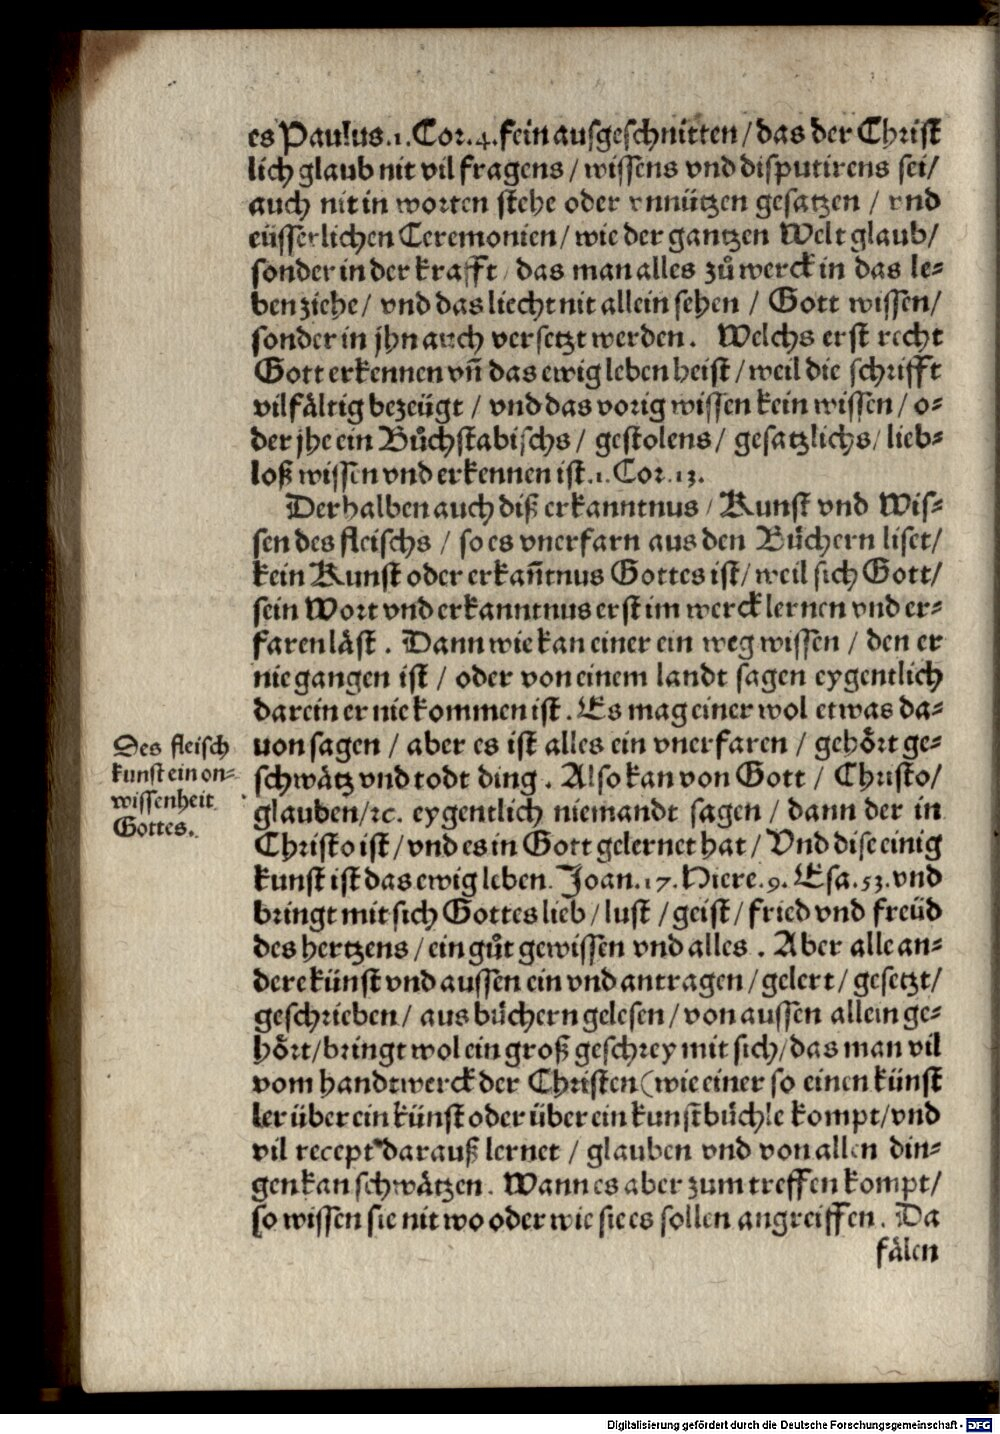 es Paulus.1.Cor.4.fein ausgeschnitten / das der Christ
lich glaub nit vil fragens / wissens vnd disputirens sei /
auch nit in worten stehe oder vnnützen gesatzen / vnd
eüsserlichen Ceremonien / wie der gantzen Welt glaub /
sonder in der krafft / das man alles zů werck in das le-
ben ziehe / vnd das liecht nit allein sehen / Gott wissen /
sonder in jhn auch versetzt werden. Welchs erst recht
Gott erkennen vñ das ewig leben heist / weil die schrifft
vilfåltig bezeügt / vnd das vorig wissen kein wissen / o-
der jhe ein Bůchstabischs / gestolens / gesatzlichs / lieb-
loß wissen vnd erkennen ist.1.Cor.13.
Derhalben auch diß erkanntnus / Kunst vnd Wis-
sen des fleischs / so es vnerfarn aus den Bůchern liset /
kein Kunst oder erkañtnus Gottes ist / weil sich Gott /
sein Wort vnd erkanntnus erst im werck lernen vnd er-
faren låst. Dann wie kan einer ein weg wissen / den er
nie gangen ist / oder von einem landt sagen eygentlich
darein er nie kommen ist. Es mag einer wol etwas da-
uon sagen / aber es ist alles ein vnerfaren / gehôrt ge-
schwåtz vnd todt ding. Also kan von Gott / Christo /
glauben / ꝛc. eygentlich niemandt sagen / dann der in
Christo ist / vnd es in Gott gelernet hat / Vnd dise einig
kunst ist das ewig leben. Joan.17.Hiere.9.Esa.53.vnd
bringt mit sich Gottes lieb / lust / geist / fried vnd freüd
des hertzens / ein gůt gewissen vnd alles. Aber alle an-
dere künst vnd aussen ein vnd antragen / gelert / gesetzt /
geschrieben / aus bůchern gelesen / von aussen allein ge-
hôrt / bringt wol ein groß geschrey mit sich / das man vil
vom handtwerck der Christen (wie einer so einen künst
ler über ein künst oder über ein kunstbůchle kompt / vnd
vil recept darauß lernet / glauben vnd von allen din-
gen kan schwåtzen. Wann es aber zum treffen kompt /
so wissen sie nit wo oder wie sie es sollen angreiffen. Da
fålen
Des fleisch
kunst ein on-
wissenheit
Gottes.
Digitalisierung gefördert durch die Deutsche Forschungsgemeinschaft - DFG